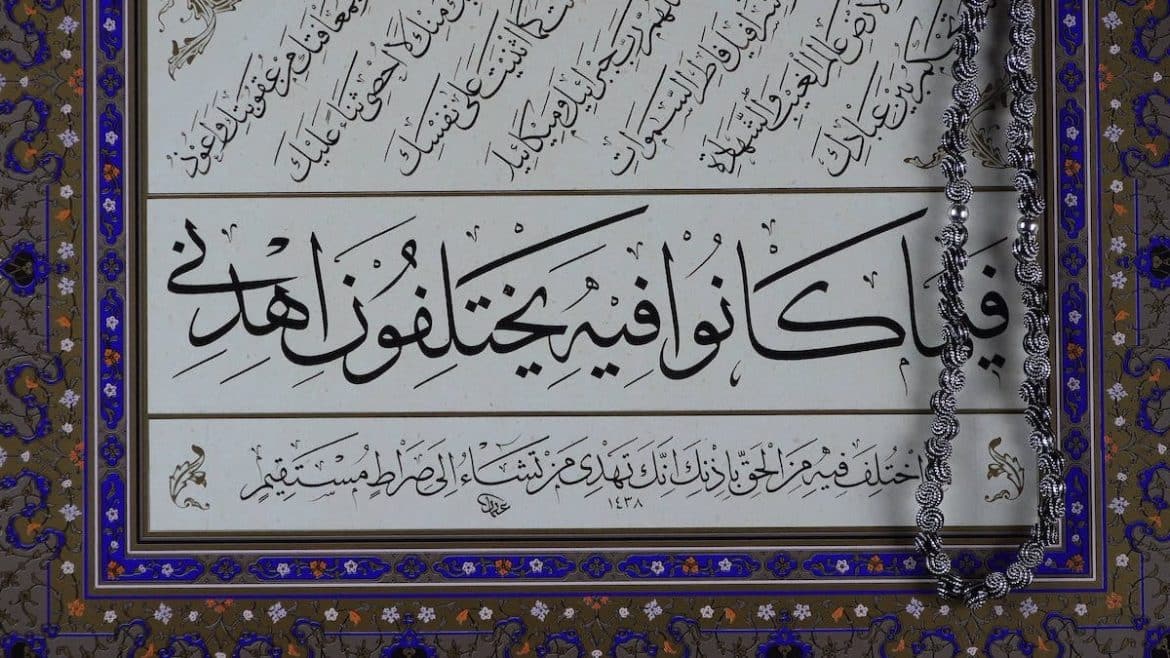 وَبِمُعَافَاتِكَ مِنْ عُقُوبَتِكَ وَاَعُوذُ
مِنْكَ لَا اُحْصِى ثَنَاءً عَلَيْكَ
كَمَا اَثْنَيْتَ عَلَى نَفْسِكَ
اَللّٰهُمَّ رَبَّ جِبْرَائِيلَ وَمِيكَائِيلَ
فَاطِرَ السَّمٰوَاتِ
عَالِمَ الْغَيْبِ وَالشَّهَادَةِ
تَحْكُمُ بَيْنَ عِبَادِكَ
فِيمَا كَانُوا فِيهِ يَخْتَلِفُونَ اِهْدِنِي
اخْتُلِفَ فِيهِ مِنَ الْحَقِّ بِاِذْنِكَ اِنَّكَ تَهْدِى مَنْ تَشَاءُ اِلٰى صِرَاطٍ مُسْتَقِيمٍ
١٤٣٨